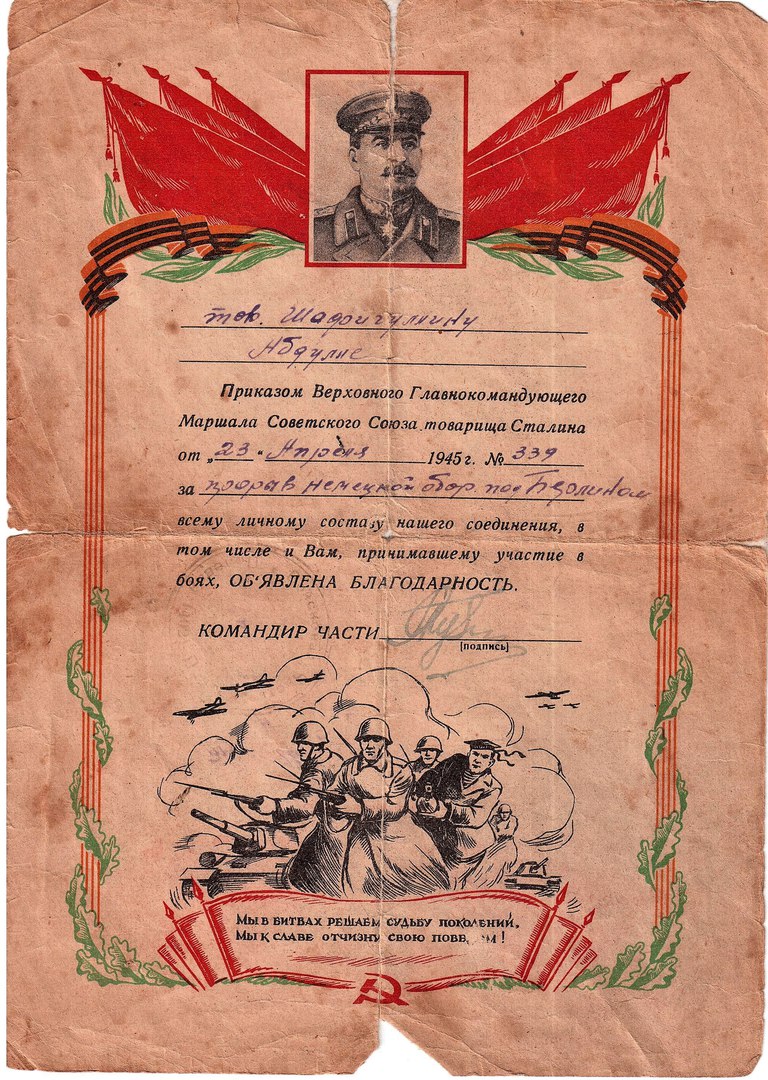 тов. Шадригулину
Абдулле
Приказом Верховного Главнокомандующего
Маршала Советского Союза товарища Сталина
от „23“ Апреля 1945 г. № 339
за прорыв немецкой обор. под Берлином
всему личному составу нашего соединения, в
том числе и Вам, принимавшему участие в
боях, ОБ‘ЯВЛЕНА БЛАГОДАРНОСТЬ.
КОМАНДИР ЧАСТИ
[подпись]
МЫ В БИТВАХ РЕШАЕМ СУДЬБУ ПОКОЛЕНИЙ,
МЫ К СЛАВЕ ОТЧИЗНУ СВОЮ !